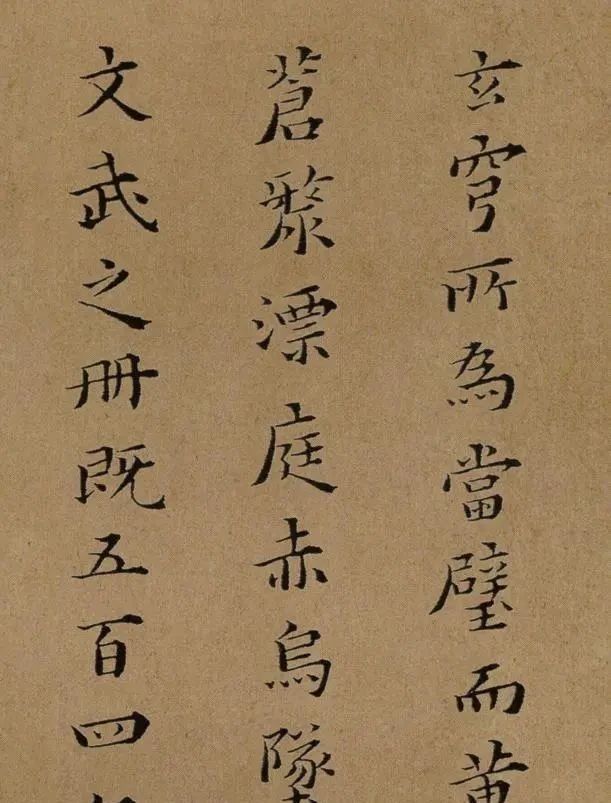 玄穹所為當璧而黄
蒼漦漂庭赤烏墜
文武之冊既五百四